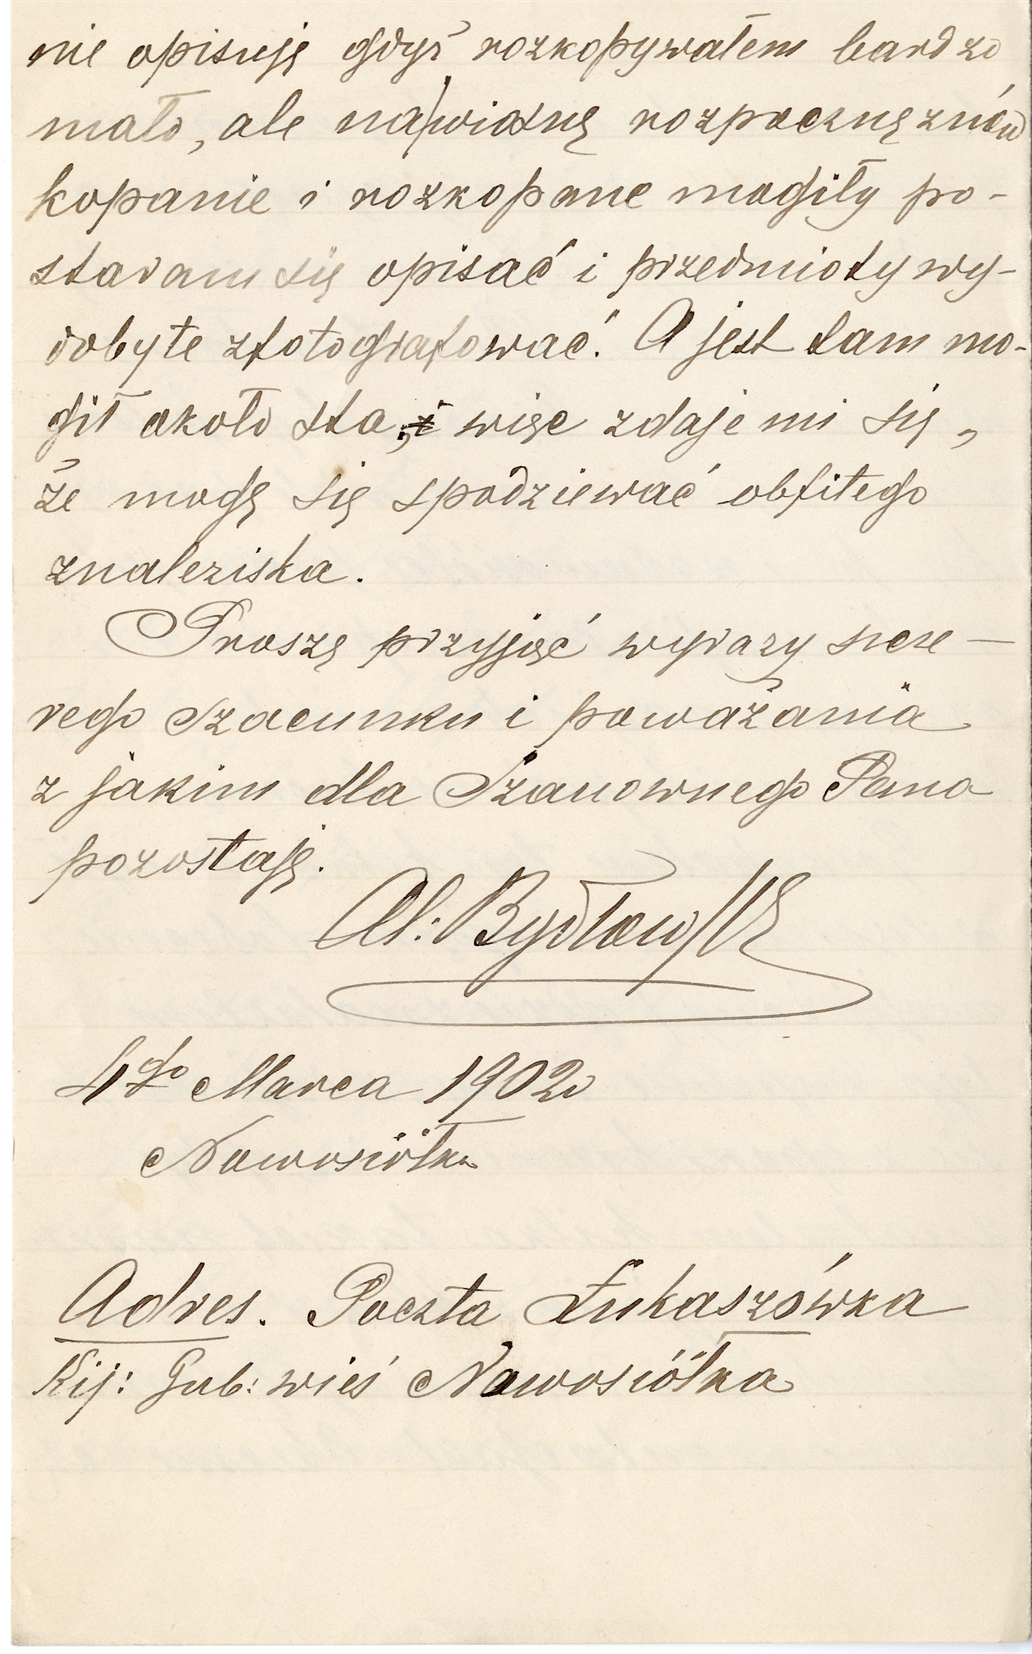 nie opisuję gdyż rozkopywałem bardzo
mało, ale na wiosnę rozpocznę znów
kopanie i rozkopane mogiły po-
staram się opisać i przedmioty wy-
dobyte zfotografować. A jest tam mo-
gił około sta, więc zdaje mi się,
że mogę się spodziewać obfitego
znaleziska.
Proszę przyjąć wyrazy szcze-
rego szacunku i poważania
z jakim dla Szanownego Pana
pozostaję.
Al: Bydłowski
4go Marca 1902
Nowosiółka
Adres. Poczta Łukaszówka
Kij: Gub: wieś Nowosiółka